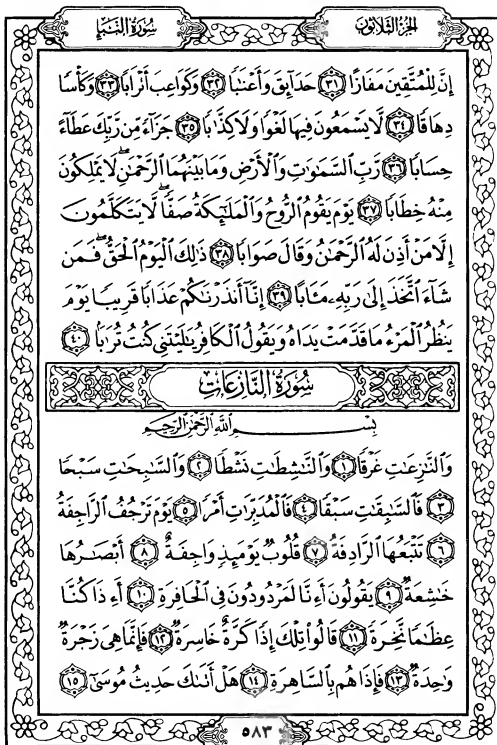 سُورَةُ النَّبَإِ الجُزْءُ الثَّلَاثُونَ
إِنَّ لِلْمُتَّقِينَ مَفَازًا ٣١ حَدَآئِقَ وَأَعْنَٰبًا ٣٢ وَكَوَاعِبَ أَتْرَابًا ٣٣ وَكَأْسًا
دِهَاقًا ٣٤ لَّا يَسْمَعُونَ فِيهَا لَغْوًا وَلَا كِذَّٰبًا ٣٥ جَزَآءً مِّن رَّبِّكَ عَطَآءً
حِسَابًا ٣٦ رَّبِّ السَّمَٰوَٰتِ وَالْأَرْضِ وَمَا بَيْنَهُمَا الرَّحْمَٰنِ ۖ لَا يَمْلِكُونَ
مِنْهُ خِطَابًا ٣٧ يَوْمَ يَقُومُ الرُّوحُ وَالْمَلَٰٓئِكَةُ صَفًّا ۖ لَّا يَتَكَلَّمُونَ
إِلَّا مَنْ أَذِنَ لَهُ الرَّحْمَٰنُ وَقَالَ صَوَابًا ٣٨ ذَٰلِكَ الْيَوْمُ الْحَقُّ ۖ فَمَن
شَآءَ اتَّخَذَ إِلَىٰ رَبِّهِۦ مَـَٔابًا ٣٩ إِنَّآ أَنذَرْنَٰكُمْ عَذَابًا قَرِيبًا يَوْمَ
يَنظُرُ الْمَرْءُ مَا قَدَّمَتْ يَدَاهُ وَيَقُولُ الْكَافِرُ يَٰلَيْتَنِى كُنتُ تُرَٰبًا ٤٠
سُورَةُ النَّازِعَاتِ
بِسْمِ اللَّهِ الرَّحْمَٰنِ الرَّحِيمِ
وَالنَّٰزِعَٰتِ غَرْقًا ١ وَالنَّٰشِطَٰتِ نَشْطًا ٢ وَالسَّٰبِحَٰتِ سَبْحًا
٣ فَالسَّٰبِقَٰتِ سَبْقًا ٤ فَالْمُدَبِّرَٰتِ أَمْرًا ٥ يَوْمَ تَرْجُفُ الرَّاجِفَةُ
٦ تَتْبَعُهَا الرَّادِفَةُ ٧ قُلُوبٌ يَوْمَئِذٍ وَاجِفَةٌ ٨ أَبْصَٰرُهَا
خَٰشِعَةٌ ٩ يَقُولُونَ أَءِنَّا لَمَرْدُودُونَ فِى الْحَافِرَةِ ١٠ أَءِذَا كُنَّا
عِظَٰمًا نَّخِرَةً ١١ قَالُوا۟ تِلْكَ إِذًا كَرَّةٌ خَاسِرَةٌ ١٢ فَإِنَّمَا هِىَ زَجْرَةٌ
وَٰحِدَةٌ ١٣ فَإِذَا هُم بِالسَّاهِرَةِ ١٤ هَلْ أَتَىٰكَ حَدِيثُ مُوسَىٰٓ ١٥
٥٨٣